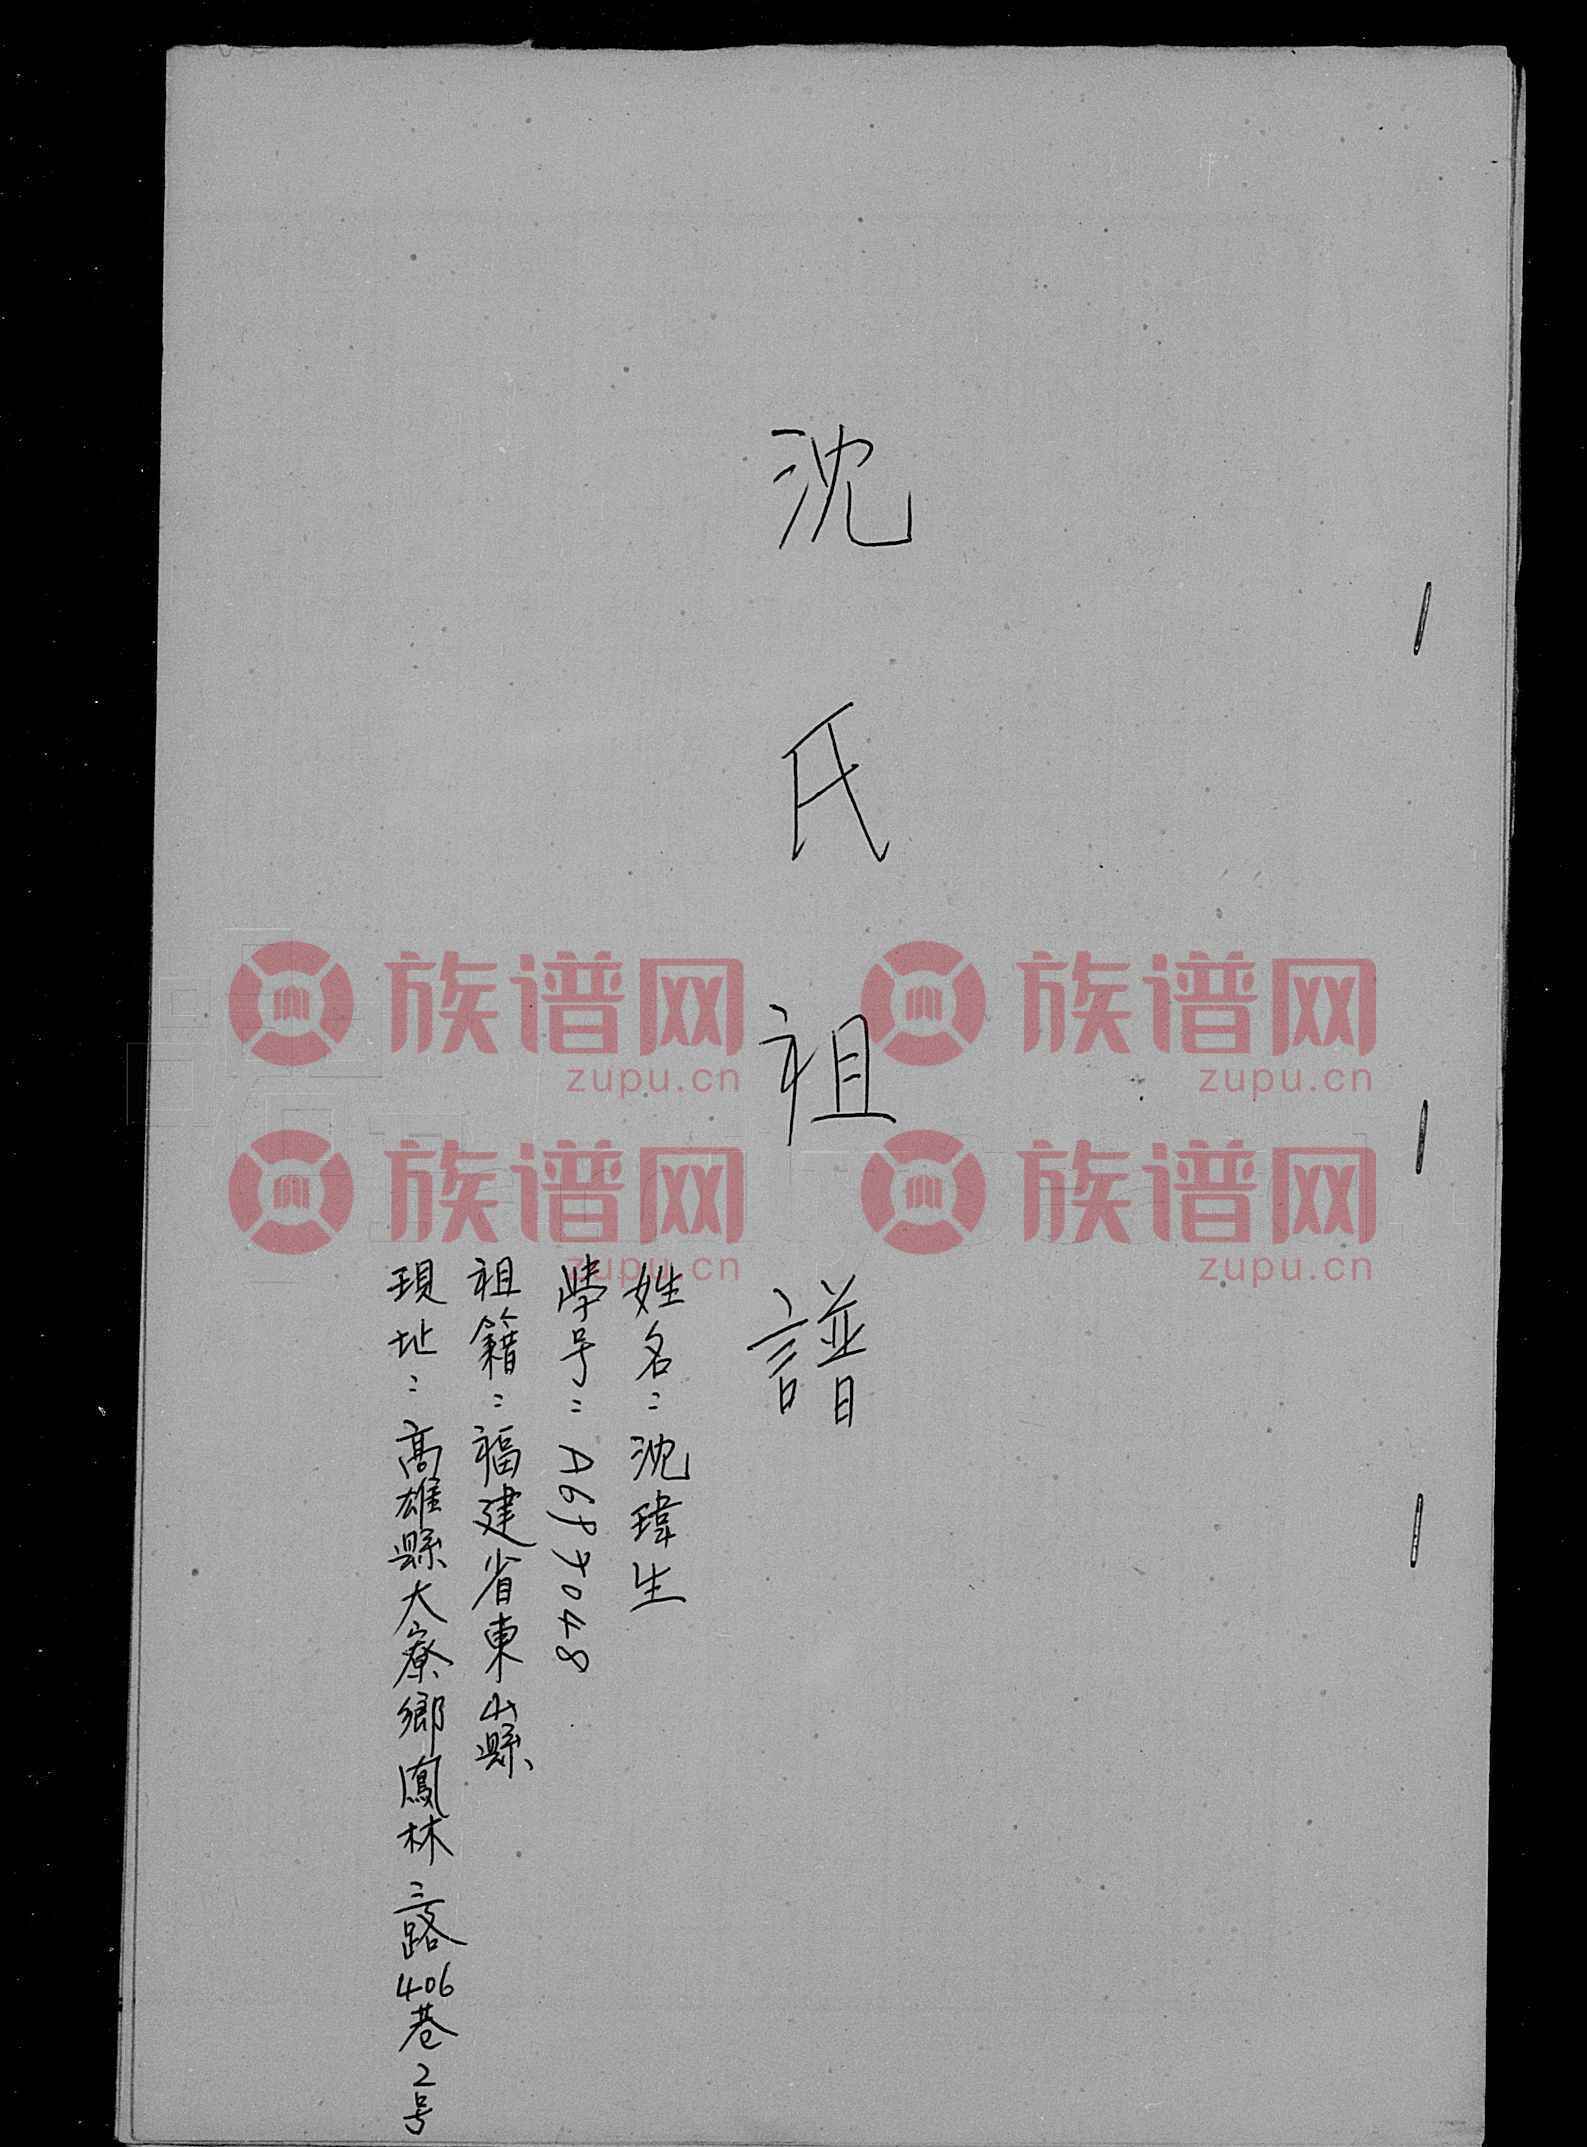 沈氏祖譜
姓名：沈瑋生
學号：A697048
祖籍：福建省東山縣
現址：高雄縣大寮鄉鳳林三路406巷2号
族谱网 zupu.cn
族谱网 zupu.cn
族谱网 zupu.cn
族谱网 zupu.cn